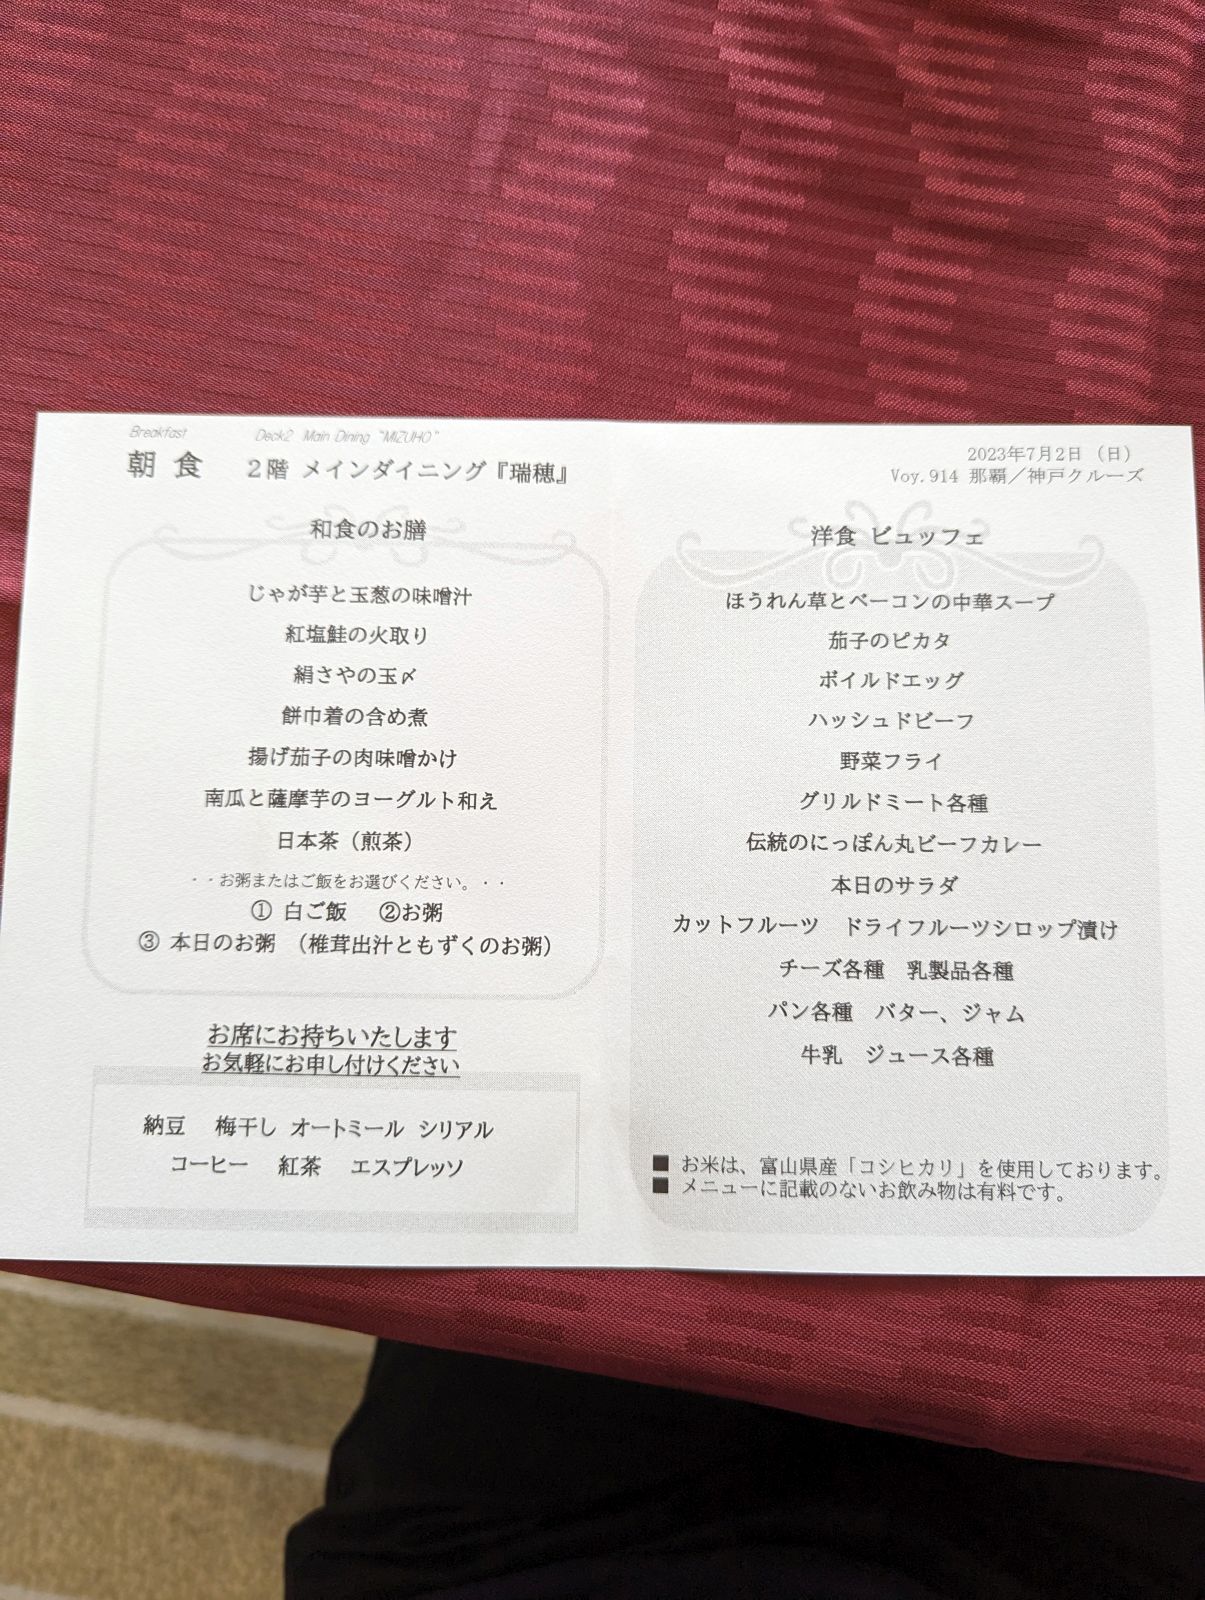 Breakfast Deck2 Main Dining "MIZUHO"
朝食 2階 メインダイニング『瑞穂』
2023年7月2日（日）
Voy.914 那覇／神戸クルーズ
和食のお膳
じゃが芋と玉葱の味噌汁
紅塩鮭の火取り
絹さやの玉〆
餅巾着の含め煮
揚げ茄子の肉味噌かけ
南瓜と薩摩芋のヨーグルト和え
日本茶（煎茶）
・・お粥またはご飯をお選びください。・・
① 白ご飯 ②お粥
③ 本日のお粥 （椎茸出汁ともずくのお粥）
お席にお持ちいたします
お気軽にお申し付けください
納豆 梅干し オートミール シリアル
コーヒー 紅茶 エスプレッソ
洋食 ビュッフェ
ほうれん草とベーコンの中華スープ
茄子のピカタ
ボイルドエッグ
ハッシュドビーフ
野菜フライ
グリルドミート各種
伝統のにっぽん丸ビーフカレー
本日のサラダ
カットフルーツ ドライフルーツシロップ漬け
チーズ各種 乳製品各種
パン各種 バター、ジャム
牛乳 ジュース各種
■ お米は、富山県産「コシヒカリ」を使用しております。
■ メニューに記載のないお飲み物は有料です。